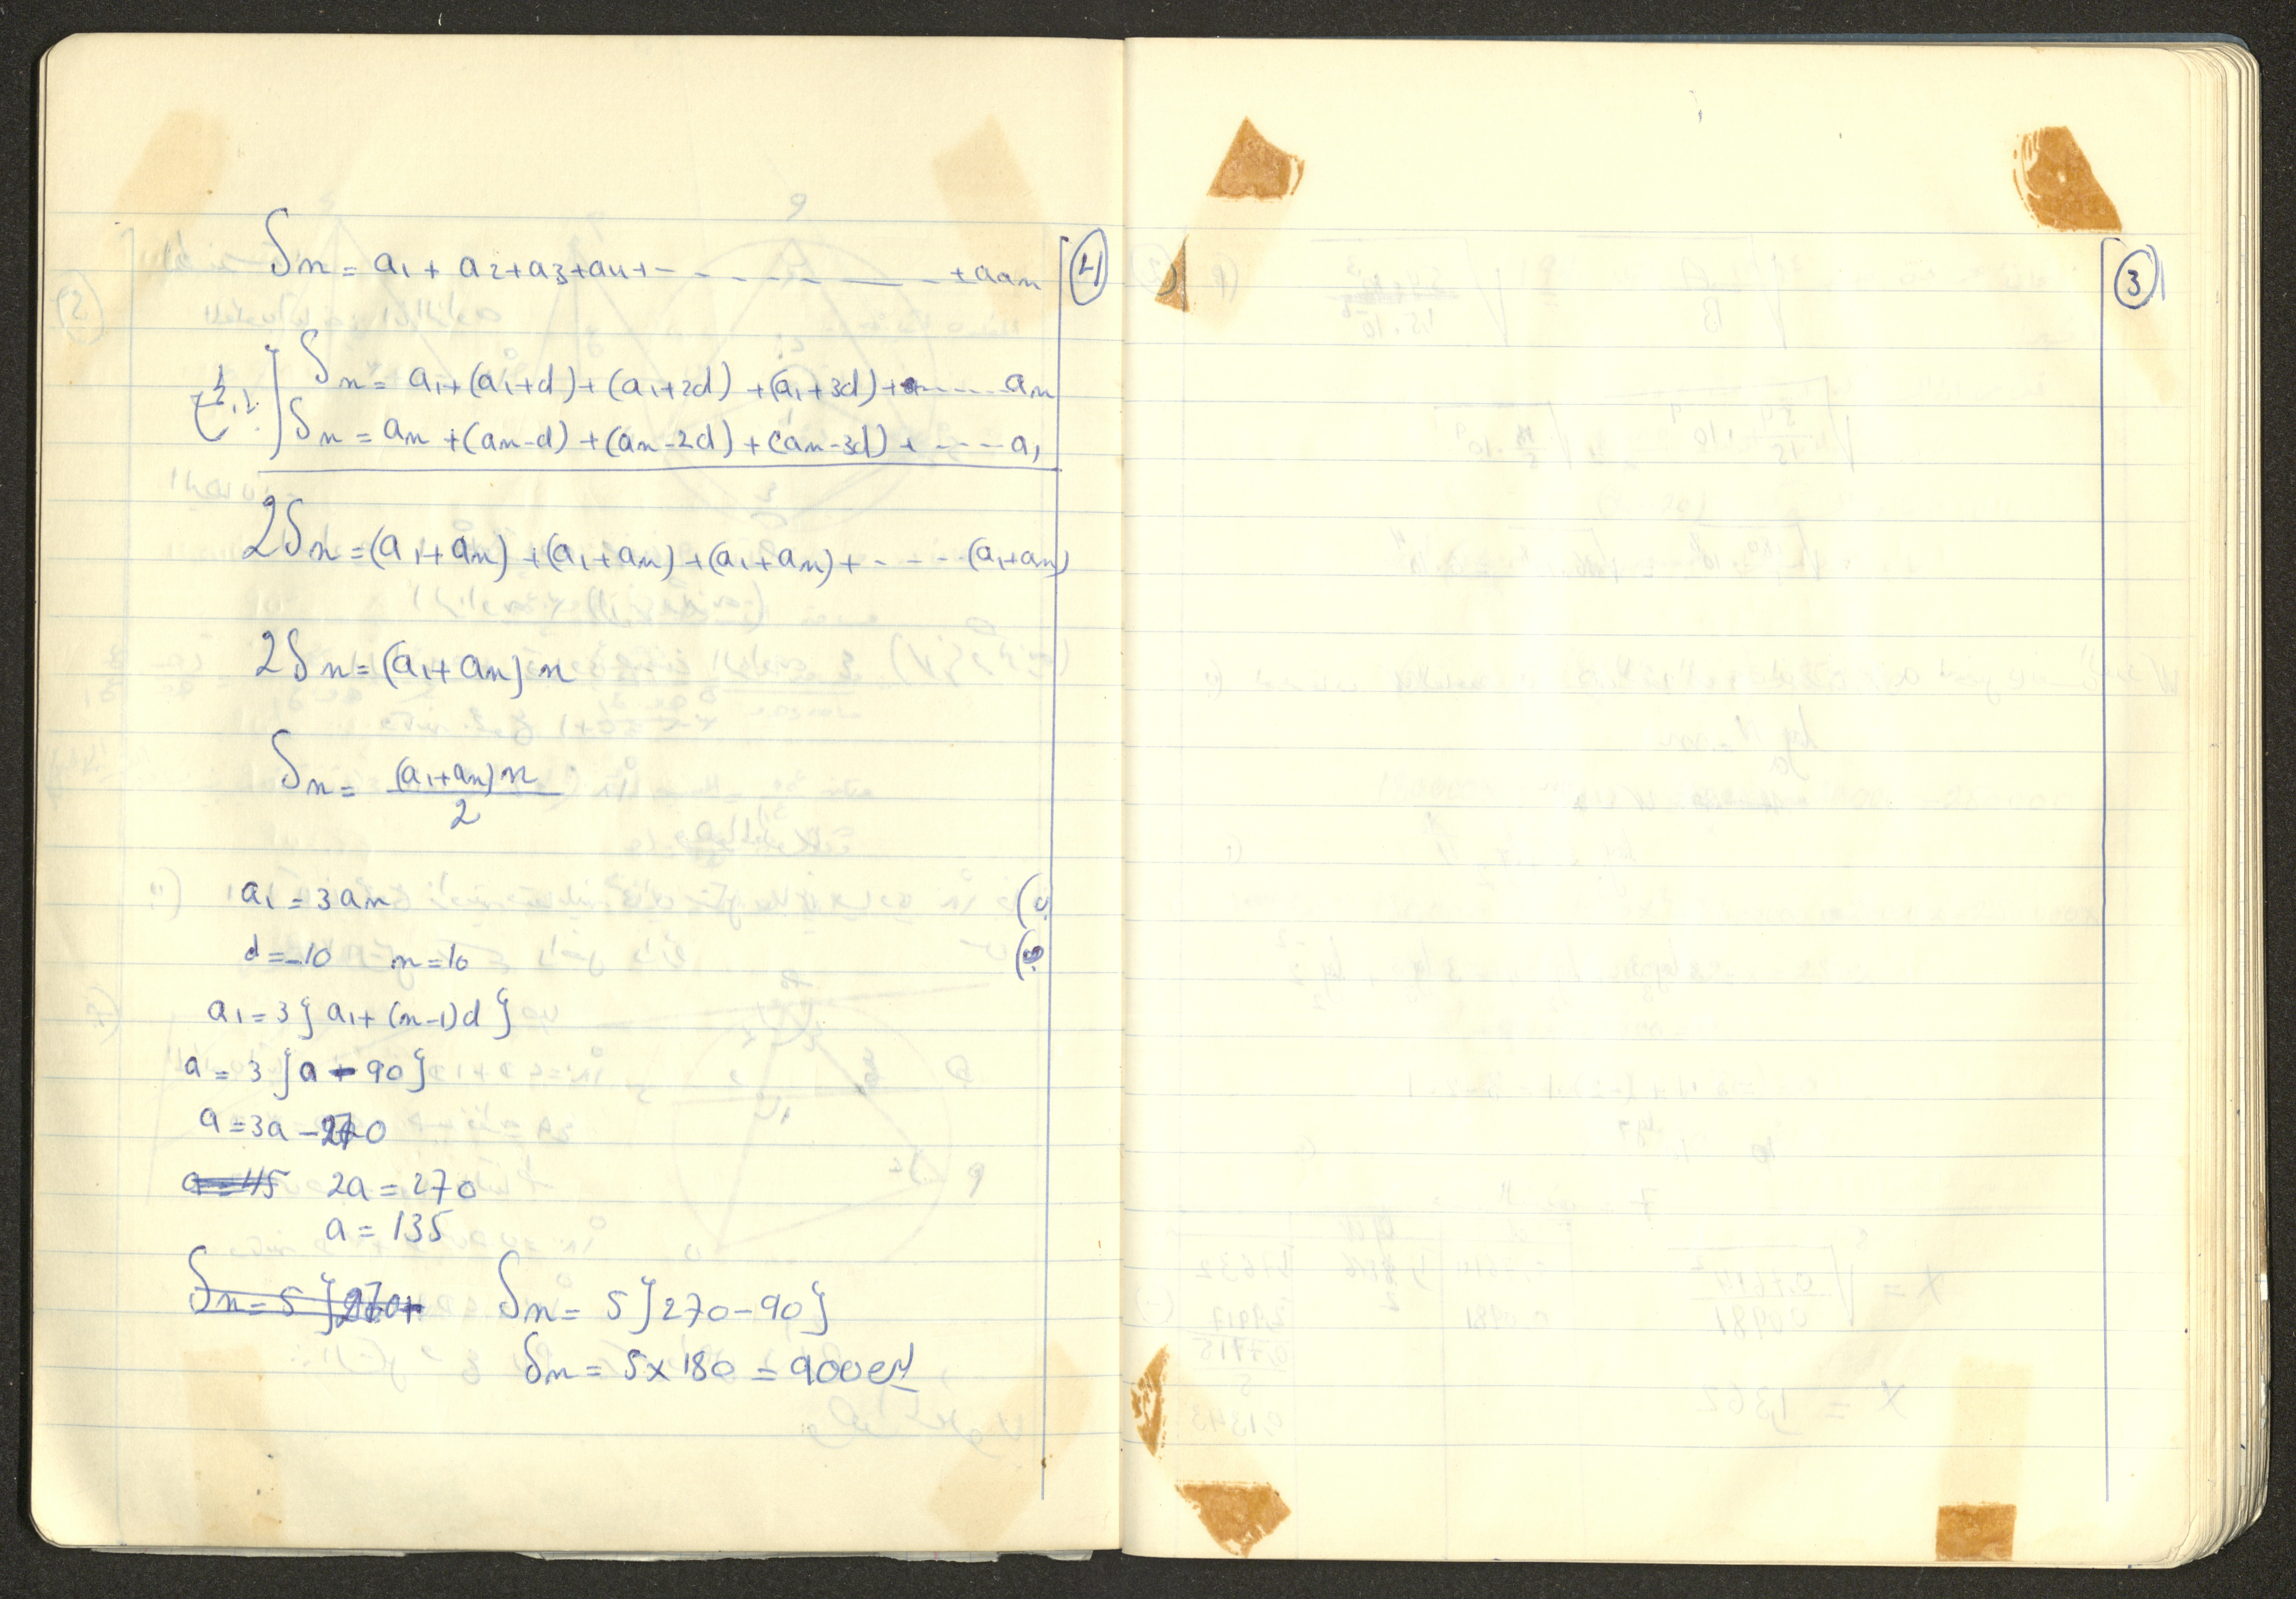 3
4
Sn = a1 + a2 + a3 + a4 + - - - - - - - - + aan
Sn = a1 + (a1+d) + (a1+2d) + (a1+3d) + - - - - an
Sn = an + (an-d) + (an-2d) + (an-3d) + - - - - a1
2Sn = (a1+an) + (a1+an) + (a1+an) + - - - - (a1+an)
2Sn = (a1+an)n
Sn = (a1+an)n / 2
a1 = 3an
d = -10 n = 10
a1 = 3{a1 + (n-1)d}
a = 3{a - 90}
a = 3a - 270
a = 45 2a = 270
a = 135
Sn = 5{270+ Sn = 5{270-90}
Sn = 5x180 = 900